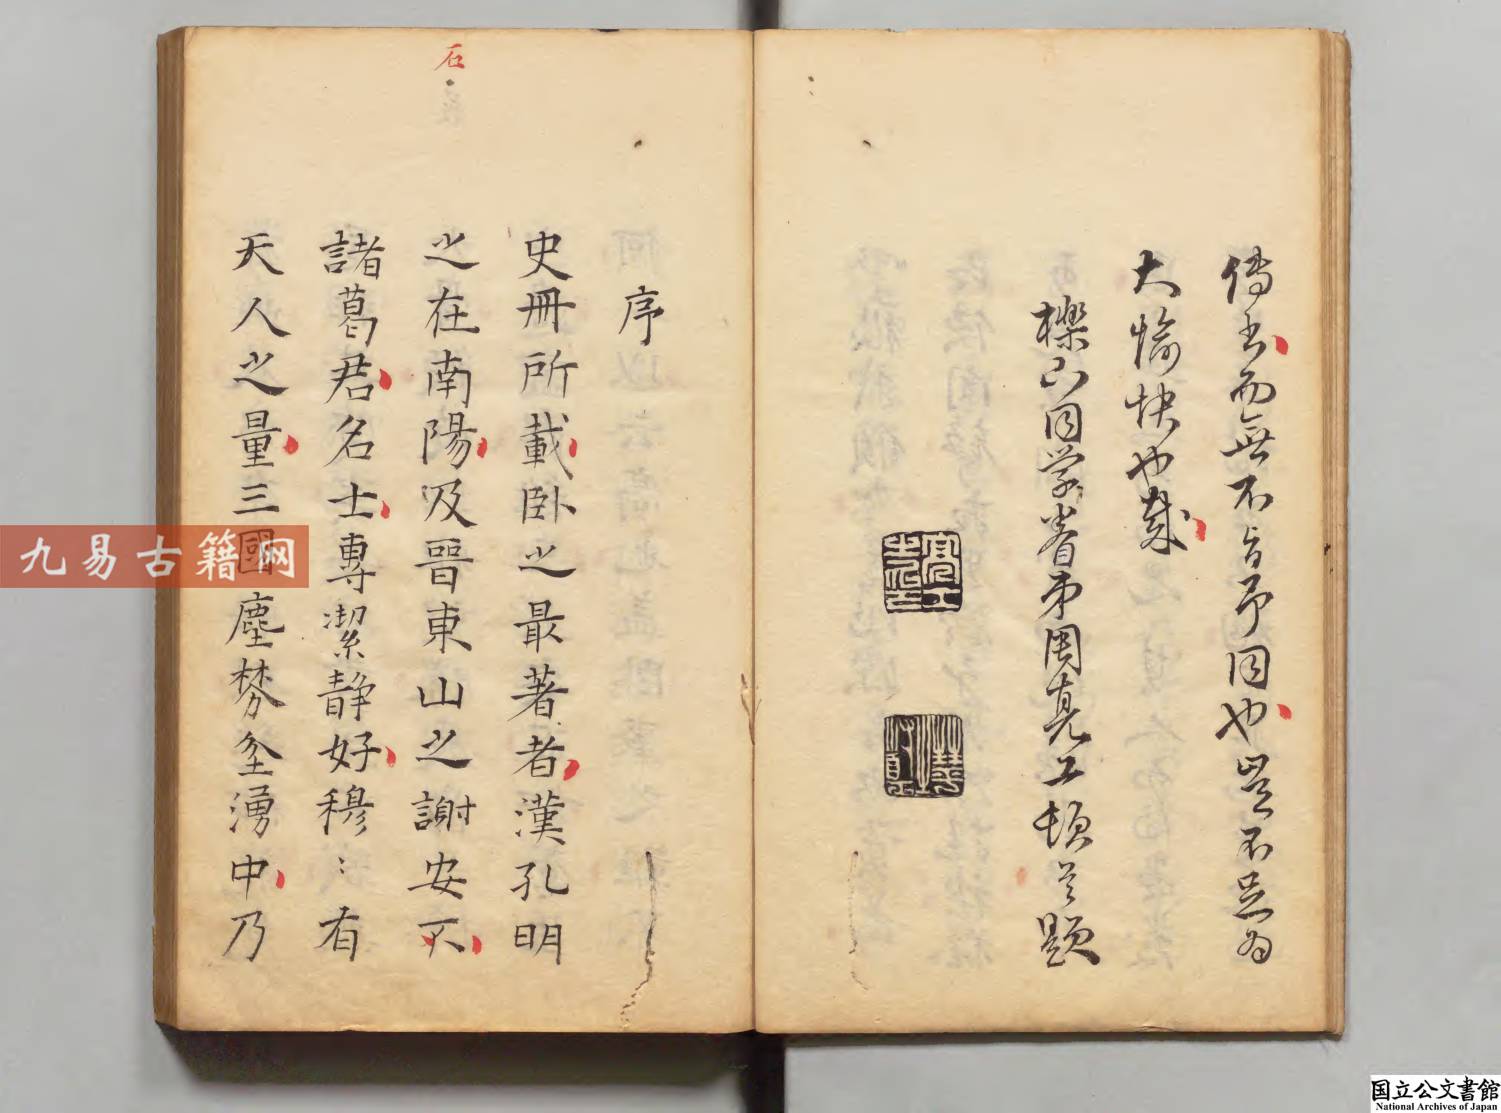 傳者而無不首可同也豈不亦為
大愉快也哉
櫟下同學眷弟周亮工頓首題
亮工之印
序
史冊所載卧之最著者漢孔明
之在南陽及晉東山之謝安不
諸葛君名士專潔靜好穆〻有
天人之量三國塵棼坌湧中乃
石
九易古籍网
国立公文書館
National Archives of Japan